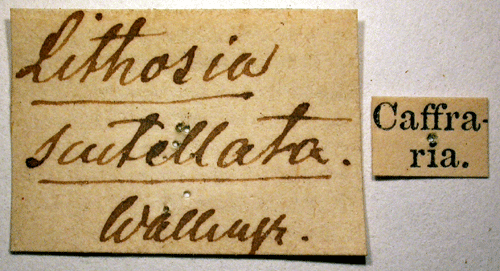 Lithosia
scutellata.
Wallengr.
Caffra-
ria.